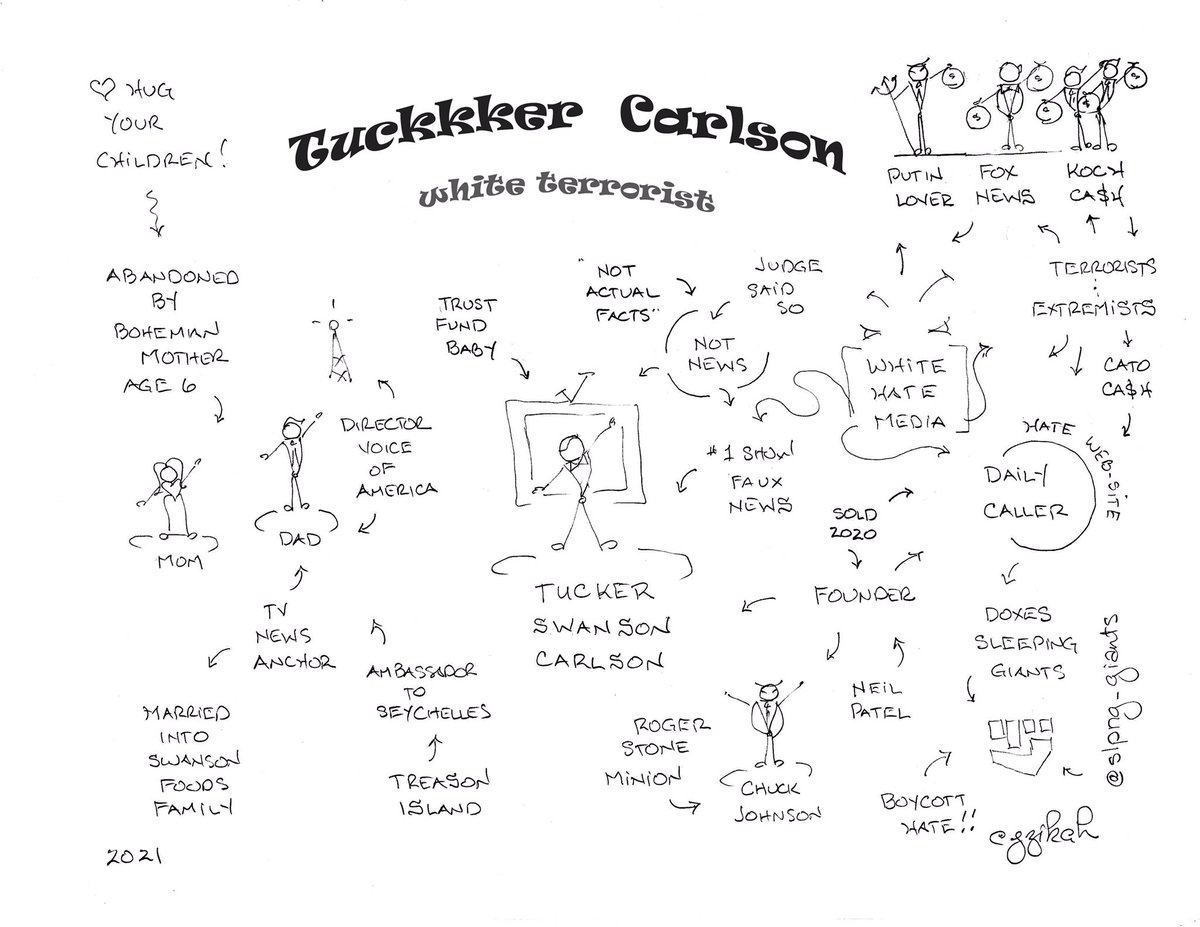 ♡ HUG
YOUR
CHILDREN!
Tuckkker Carlson
white terrorist
PUTIN
LOVER
FOX
NEWS
KOCH
CA$H
ABANDONED
BY
BOHEMIAN
MOTHER
AGE 6
MOM
DAD
DIRECTOR
VOICE
OF
AMERICA
TRUST
FUND
BABY
"NOT
ACTUAL
FACTS"
JUDGE
SAID
SO
NOT
NEWS
WHITE
HATE
MEDIA
TERRORISTS
EXTREMISTS
CATO
CA$H
#1 SHOW
FAUX
NEWS
HATE
WEB-SITE
DAILY
CALLER
SOLD
2020
FOUNDER
TUCKER
SWANSON
CARLSON
TV
NEWS
ANCHOR
MARRIED
INTO
SWANSON
FOODS
FAMILY
AMBASSADOR
TO
SEYCHELLES
TREASON
ISLAND
ROGER
STONE
MINION
CHUCK
JOHNSON
NEIL
PATEL
DOXES
SLEEPING
GIANTS
@slpng-giants
BOYCOTT
HATE!!
cyzikah
2021